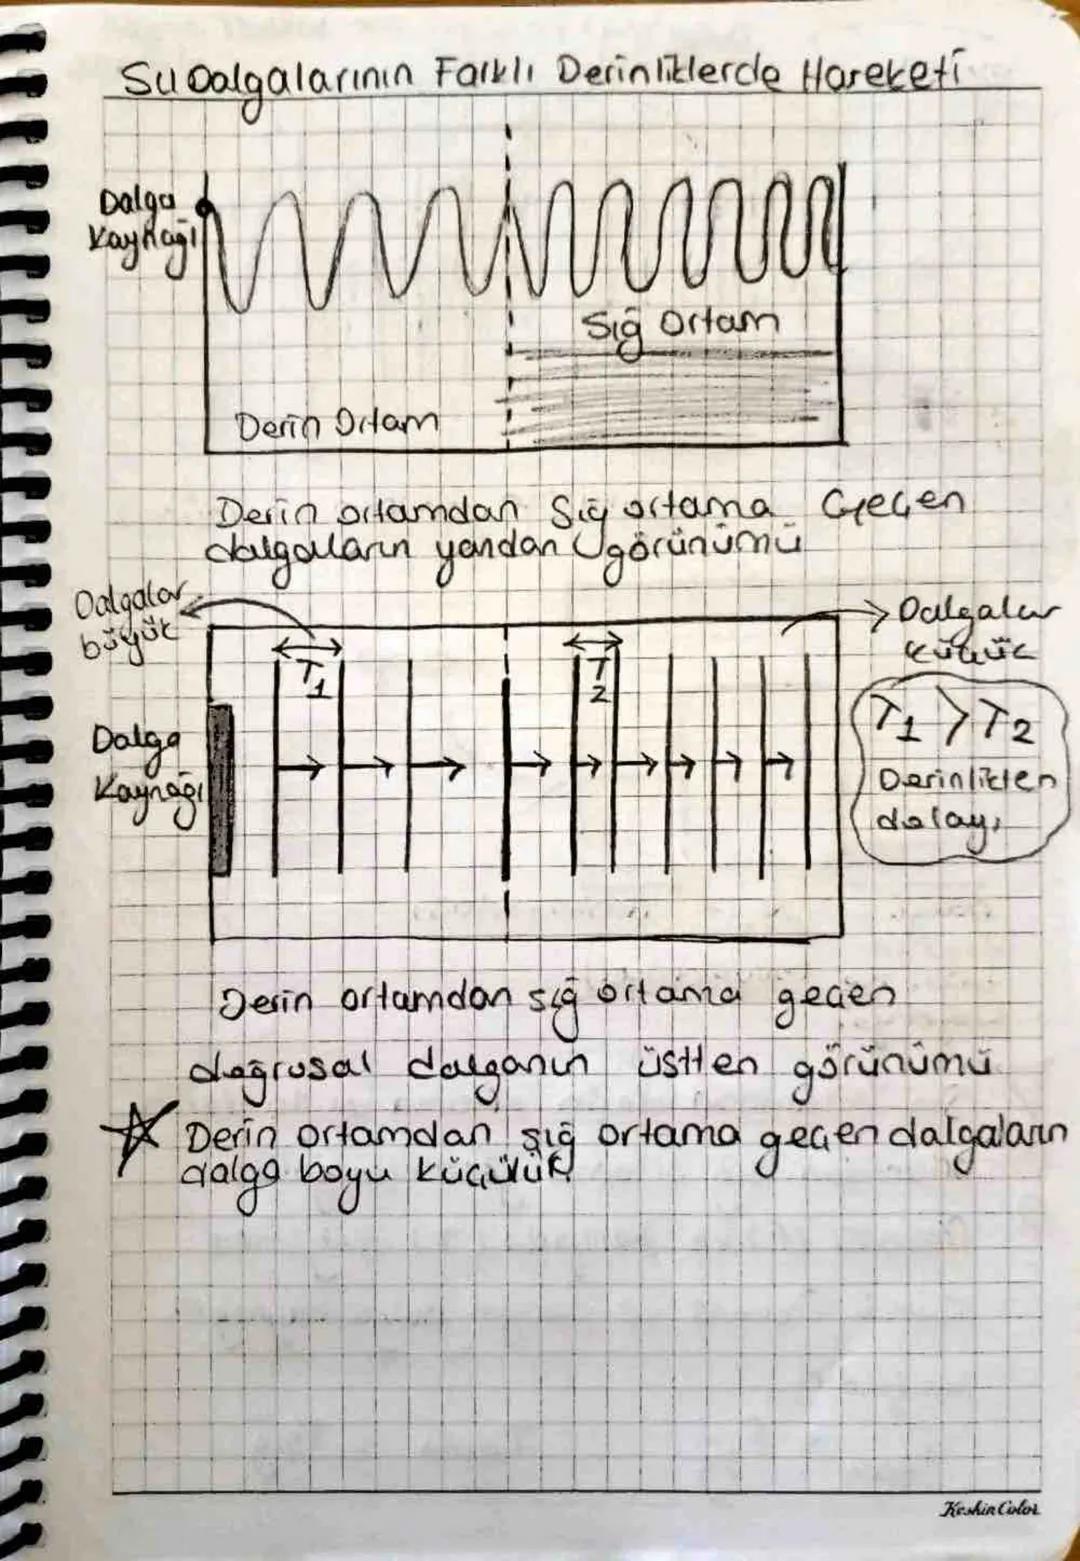 Su Dalgalarının Farklı Derinliklerde Hareketi
Dalga
Kaynağı
Sığ Ortam
Derin Ortam
Derin ortamdan Sığ ortama Geçen
dalgaların yandan görünümü
Dalgalar
büyük
Dalgalar
küçük
T1
T2
T1 > T2
Derinlikten
dolayı
Dalga
Kaynağı
Derin ortamdan sığ ortama geçen
doğrusal dalganın üstten görünümü
Derin ortamdan sığ ortama geçen dalgaların
dalga boyu küçülür
Keskin Color